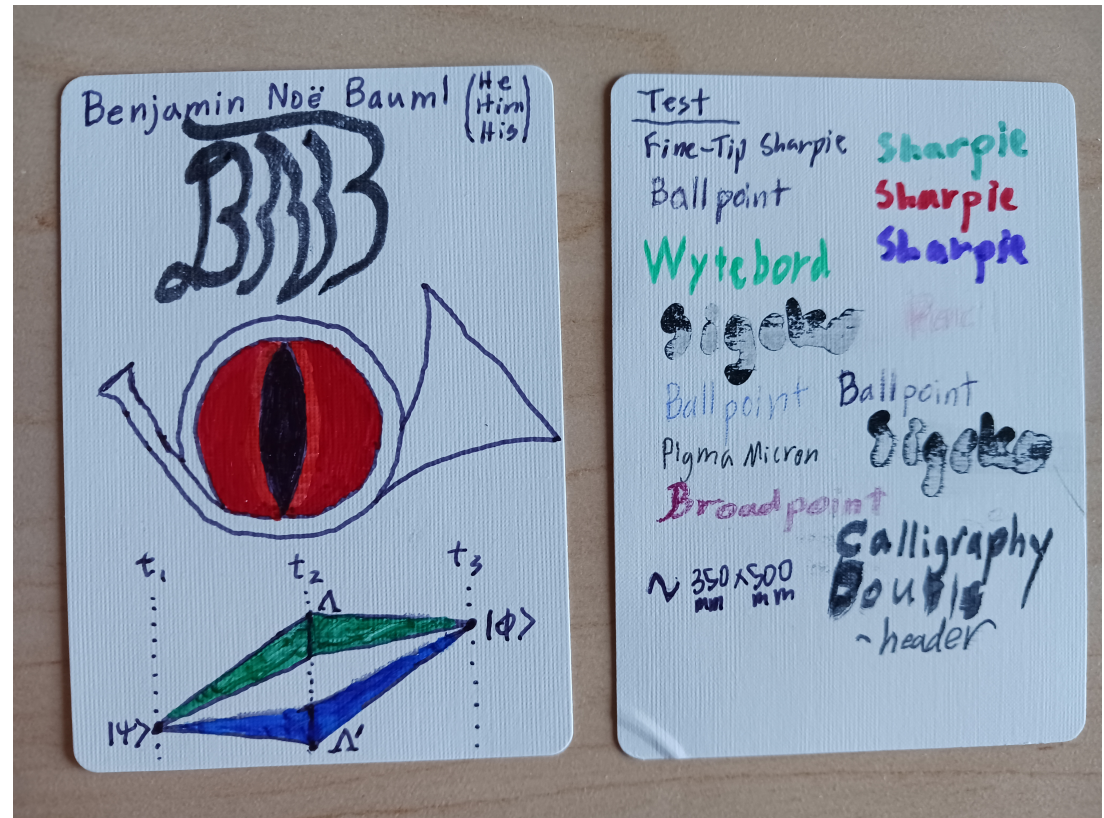 Benjamin Noë Bauml
(He
Him
His)
BNB
t₁
t₂
t₃
Λ
|ϕ>
|ψ>
Λ'
Test
Fine-Tip Sharpie
Sharpie
Ballpoint
Sharpie
Wytebord
Sharpie
Ballpoint
Ballpoint
Pigma Micron
Broadpoint
Calligraphy
~ 350 x 500
mm mm
Double
~header